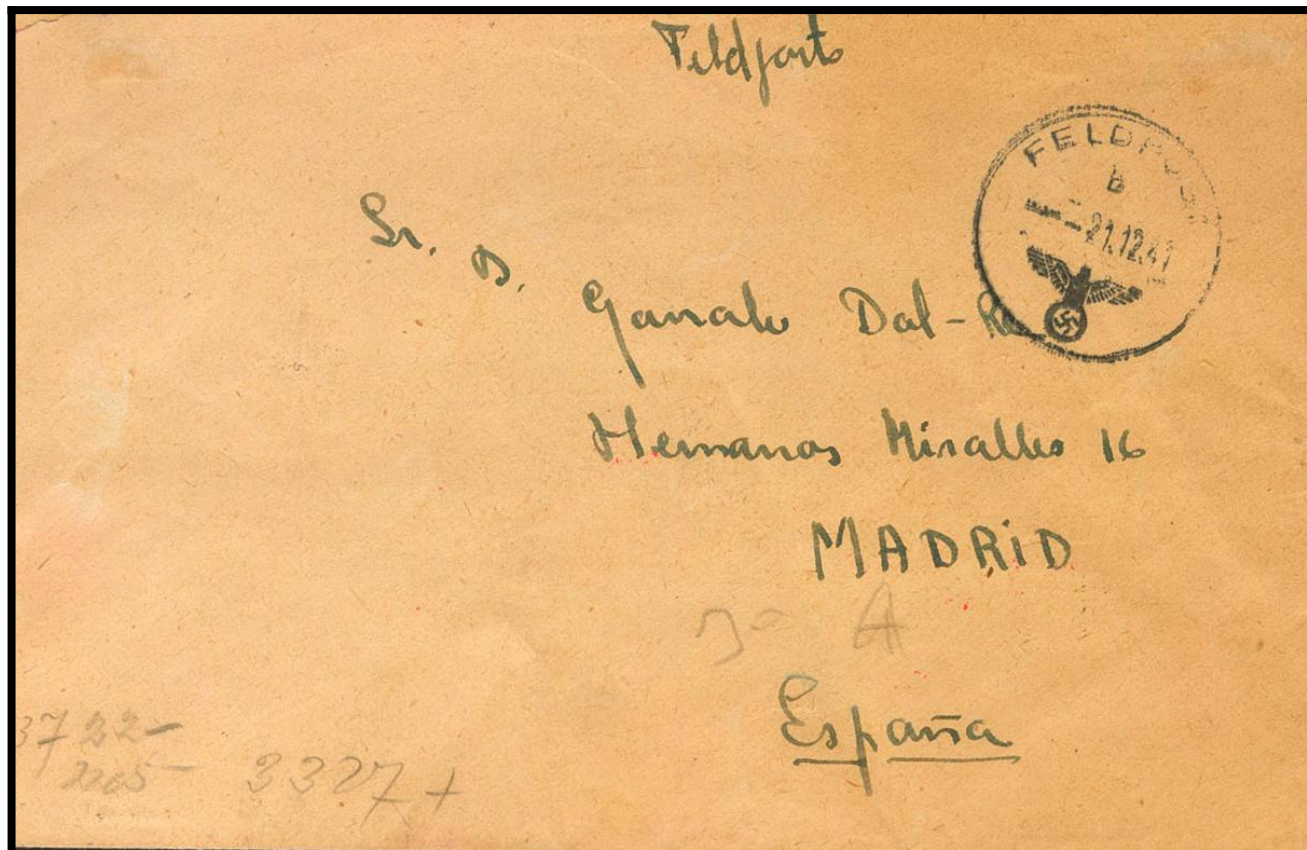 Feldpost
FELDPOST
b
21.12.41
Sr. D.
Gonzalo Dal-Re
Hermanos Miralles 16
MADRID
3º A
España
3722-
3327 +